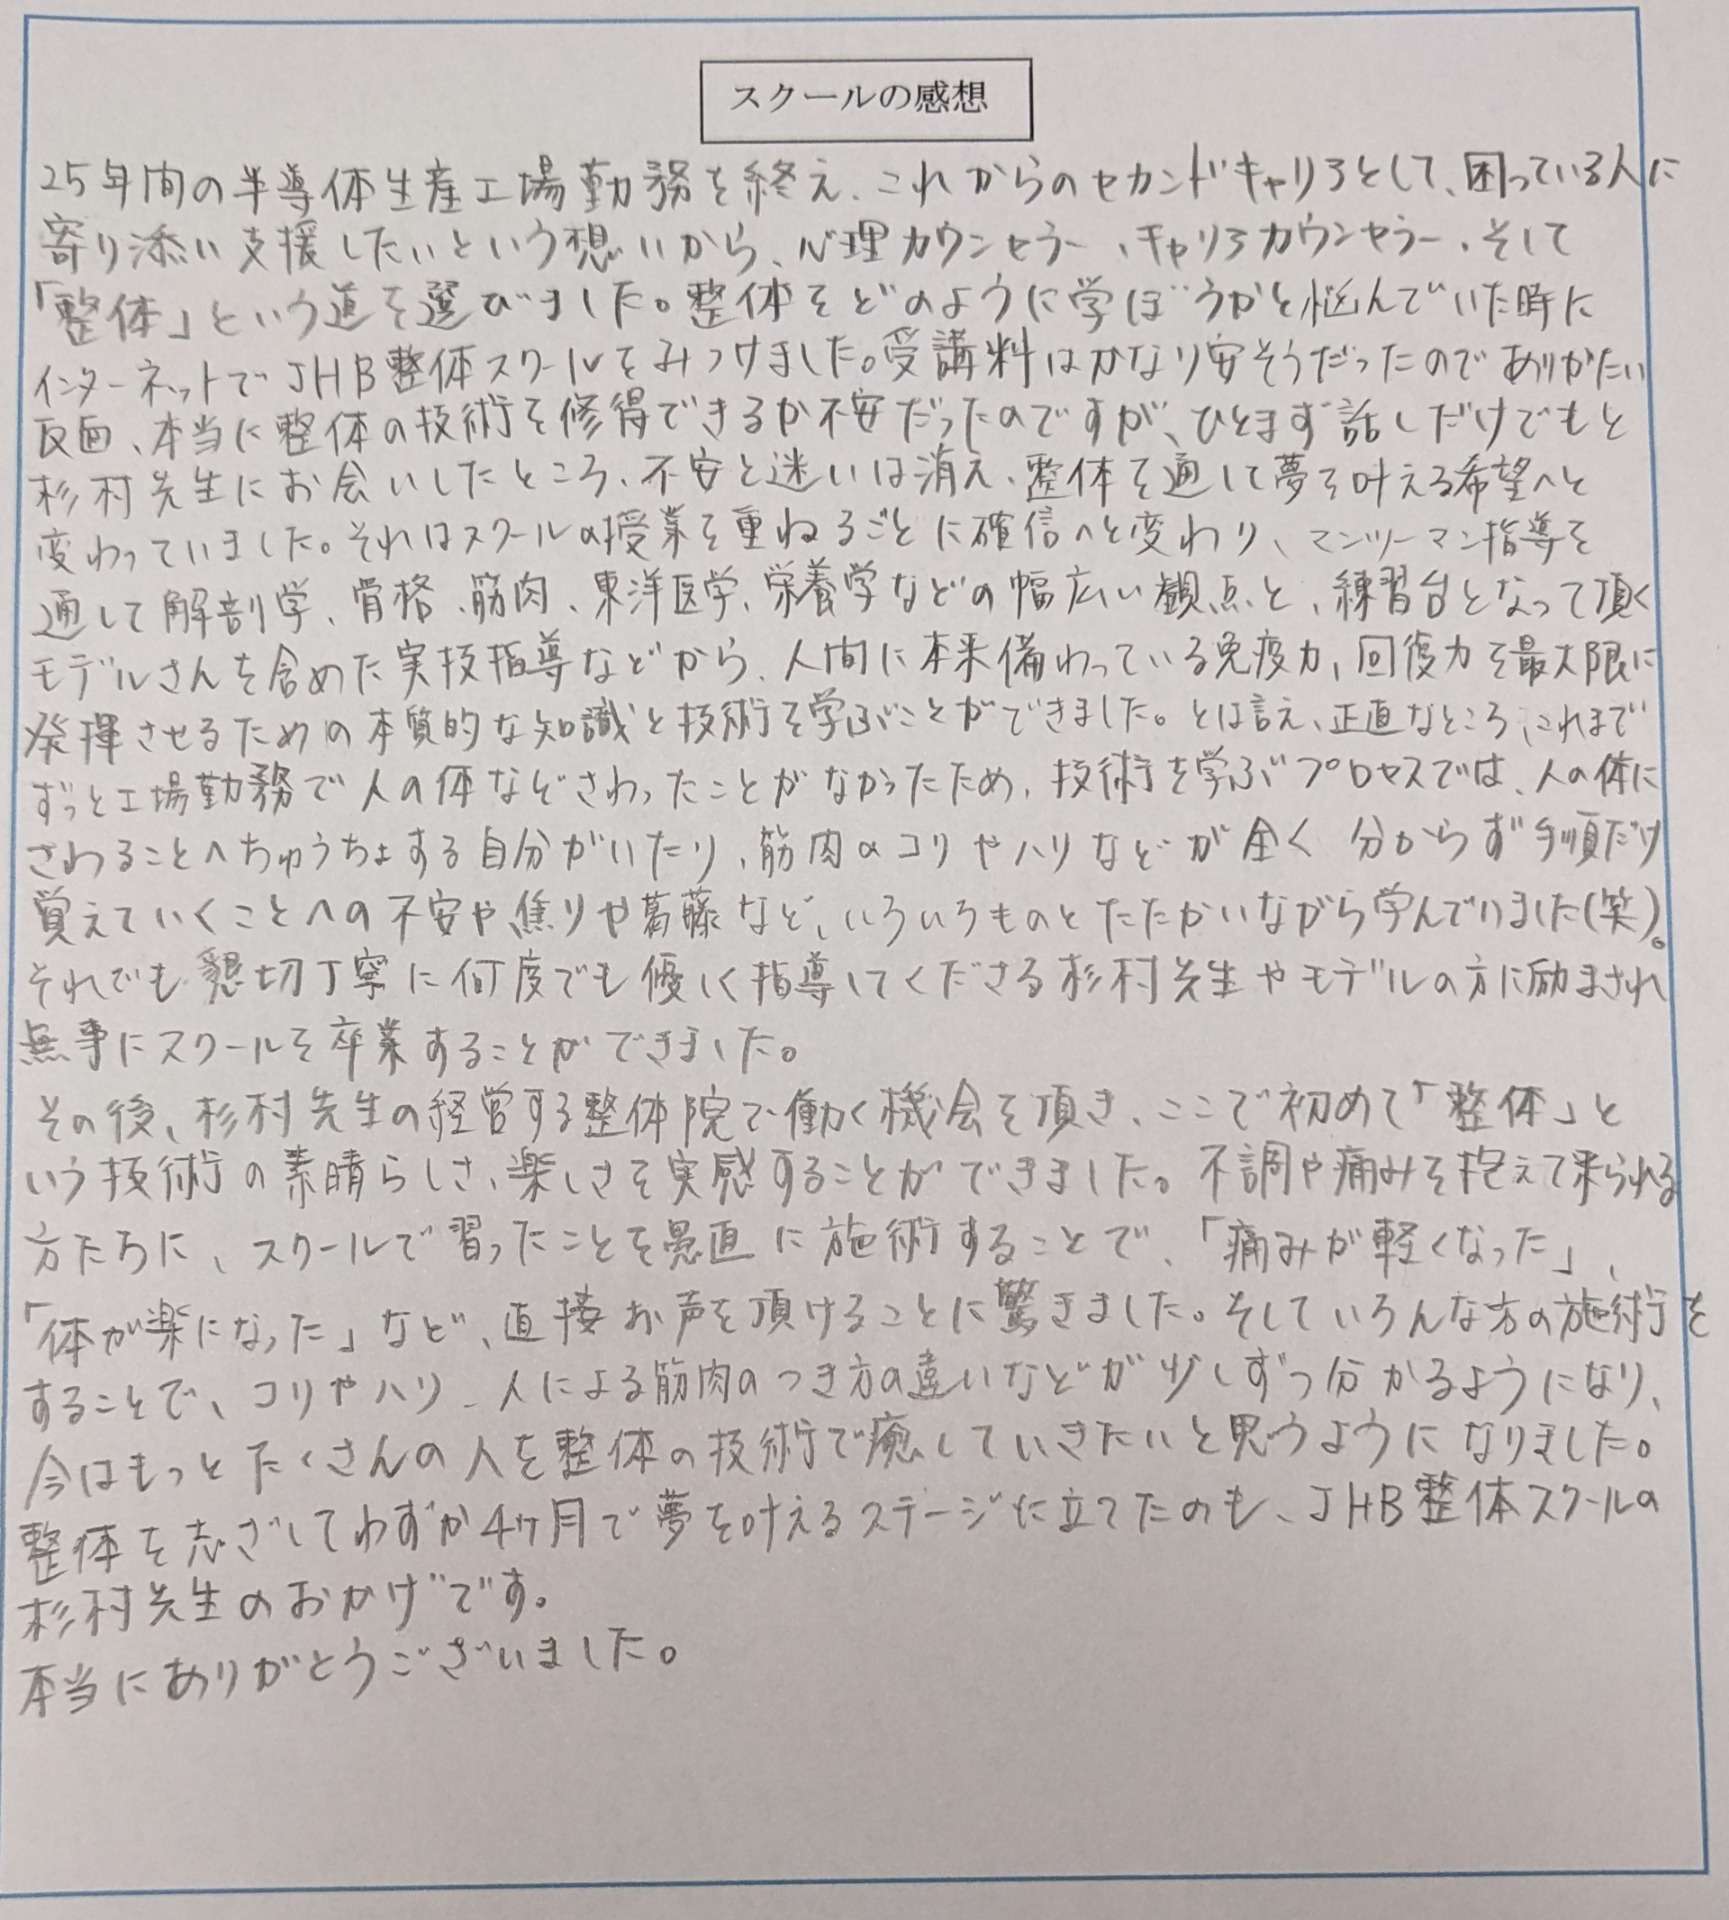 スクールの感想
25年間の半導体生産工場勤務を終え、これからのセカンドキャリアとして、困っている人に
寄り添い支援したいという想いから、心理カウンセラー、キャリアカウンセラー、そして
「整体」という道を選びました。整体をどのように学ぼうかと悩んでいた時に
インターネットでJHB整体スクールをみつけました。受講料はかなり安そうだったのでありがたい
反面、本当に整体の技術を修得できるか不安だったのですが、ひとまず話しだけでもと
杉村先生にお会いしたところ、不安と迷いは消え、整体を通して夢を叶える希望へと
変わっていました。それはスクールの授業を重ねるごとに確信へと変わり、マンツーマン指導を
通して解剖学、骨格、筋肉、東洋医学、栄養学などの幅広い観点と、練習台となって頂く
モデルさんを含めた実技指導などから、人間に本来備わっている免疫力、回復力を最大限に
発揮させるための本質的な知識と技術を学ぶことができました。とは言え、正直なところ、これまで
ずっと工場勤務で人の体などさわったことがなかったため、技術を学ぶプロセスでは、人の体に
さわることへちゅうちょする自分がいたり、筋肉のコリやハリなどが全く分からず手順だけ
覚えていくことへの不安や、焦りや葛藤など、いろいろものとたたかいながら学んでいました(笑)。
それでも懇切丁寧に何度でも優しく指導してくださる杉村先生やモデルの方に励まされ
無事にスクールを卒業することができました。
その後、杉村先生の経営する整体院で働く機会を頂き、ここで初めて「整体」と
いう技術の素晴らしさ、楽しさを実感することができました。不調や痛みを抱えて来られる
方たちに、スクールで習ったことを愚直に施術することで、「痛みが軽くなった」、
「体が楽になった」など、直接お声を頂けることに驚きました。そしていろんな方の施術を
することで、コリやハリ、人による筋肉のつき方の違いなどが少しずつ分かるようになり、
今はもっとたくさんの人を整体の技術で癒していきたいと思うようになりました。
整体を志ざしてわずか4ヶ月で夢を叶えるステージに立てたのも、JHB整体スクールの
杉村先生のおかげです。
本当にありがとうございました。